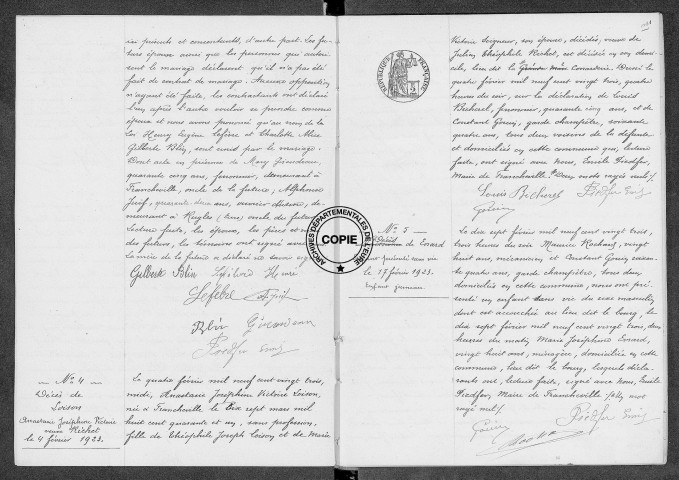 ici présents et consentants, d'autre part. Les fu-
turs époux ainsi que les personnes qui autori-
sent le mariage déclarent qu'il n'a pas été
fait de contrat de mariage. Aucune opposition
n'ayant été faite, les contractants ont déclaré
l'un après l'autre vouloir se prendre comme
époux et nous avons prononcé qu'au nom de la
Loi Henry Eugène Lefèbre et Charlotte Alice
Gilberte Blin, sont unis par le mariage.
Dont acte en présence de Mary Girondeau,
quarante cinq ans, journalier, demeurant à
Francheville, oncle de la future; Alphonse
quarante deux ans, ouvrier demeurant
à Rugles (Eure) oncle du futur.
Lecture faite, les époux, les pères et
du futur, les témoins ont signé avec
la mère de la future a déclaré ne savoir signer
Gilberte Blin Lefebvre Henri
Lefebre
Blin
Prodfer Emile
N° 4
Décès de
Loison
Anastasie Joséphine Victoire
veuve Richet
le 4 février 1923.
Le quatre février mil neuf cent vingt trois,
midi, Anastasie Joséphine Victoire Loison,
née à Francheville le dix sept mars mil
huit cent quarante et un, sans profession,
fille de Théophile Joseph Loison et de Marie
Victoire Seigneur, son épouse, décédés, veuve de
Julien Théophile Richet, est décédée en son domi-
cile, lieu dit la
quatre février mil neuf cent vingt trois, quatre
heures du soir, sur la déclaration de Louis
Bécherel, journalier, quarante cinq ans, et de
Constant Gouin, garde champêtre, soixante
quatre ans, tous deux voisins de la défunte
et domiciliés en cette commune qui, lecture
faite, ont signé avec nous, Emile
Maire de Francheville. Deux mots rayés nuls.
Louis Bécherel Prodfer Emile
Gouin
REPUBLIQUE FRANÇAISE
ARCHIVES DÉPARTEMENTALES DE L'EURE
COPIE
N° 5
enfant présenté sans vie
le 17 février 1923.
Le dix sept février mil neuf cent vingt trois,
trois heures du soir Maurice Rochard, vingt
huit ans, mécanicien et Constant Gouin, soixan-
te quatre ans, garde champêtre, tous deux
domiciliés en cette commune, nous ont pré-
senté un enfant sans vie du sexe masculin
dont est accouchée au lieu dit le bourg, le
dix sept février mil neuf cent vingt trois, deux
heures du matin, Marie Joséphine
vingt huit ans, ménagère, domiciliée en cette
commune, lieu dit le bourg, lesquels décla-
rants ont, lecture faite, signé avec nous, Emile
Maire de Francheville
rayé nul.
Gouin Prodfer Emile